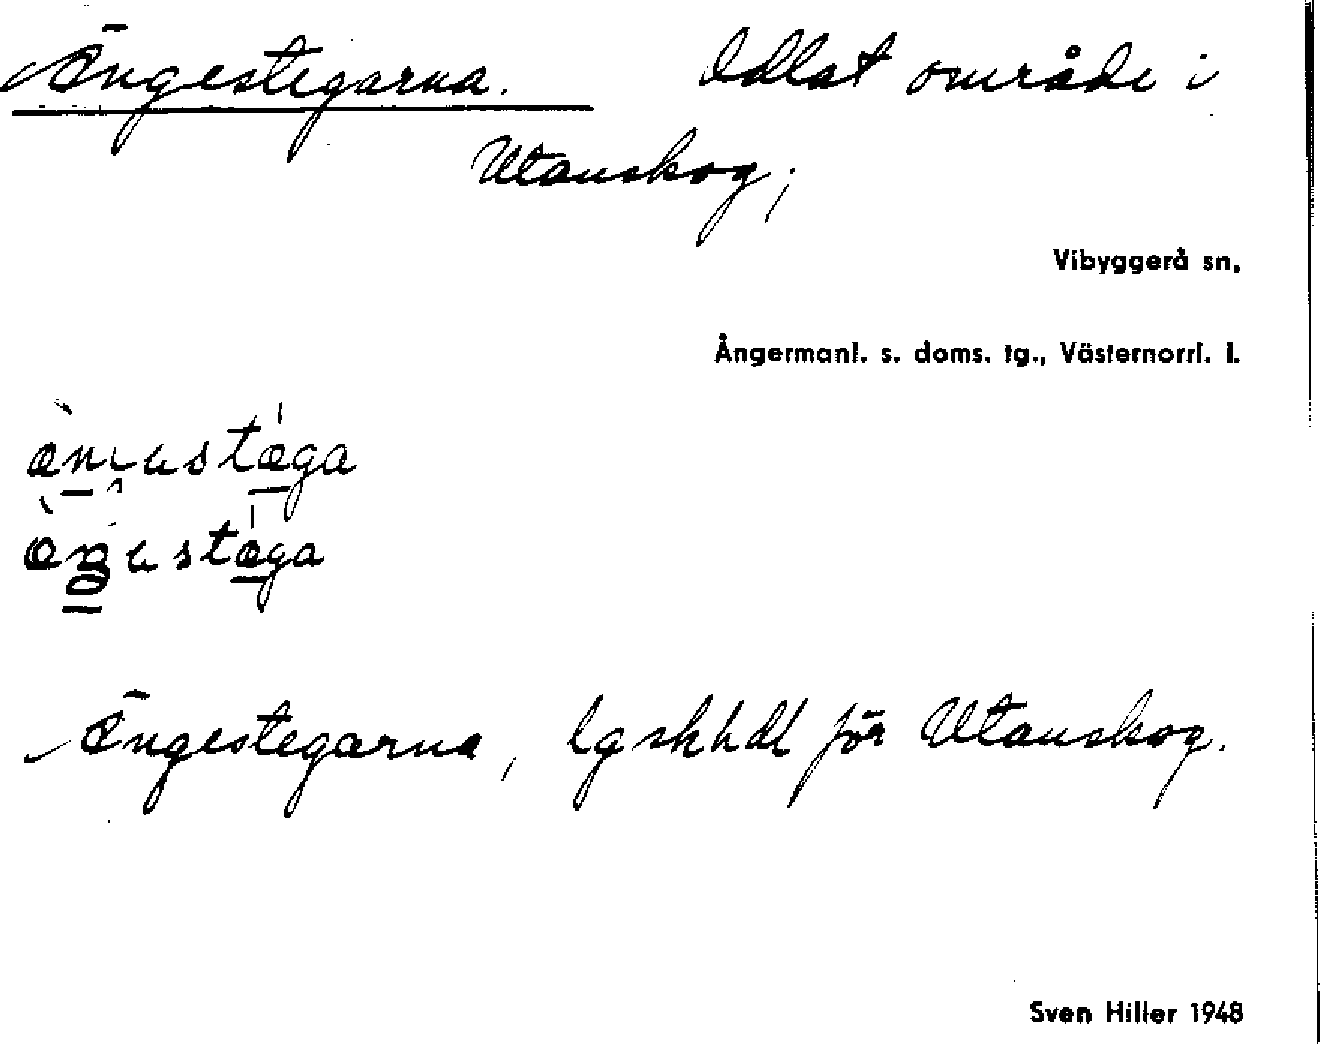 Ängestegarna. Odlat område i
Utanskog;
Vibyggerå sn,
Ångermanl. s. doms. tg., Västernorrl. l.
Ängestegarna, lgskhdl för Utanskog.
Sven Hiller 1948